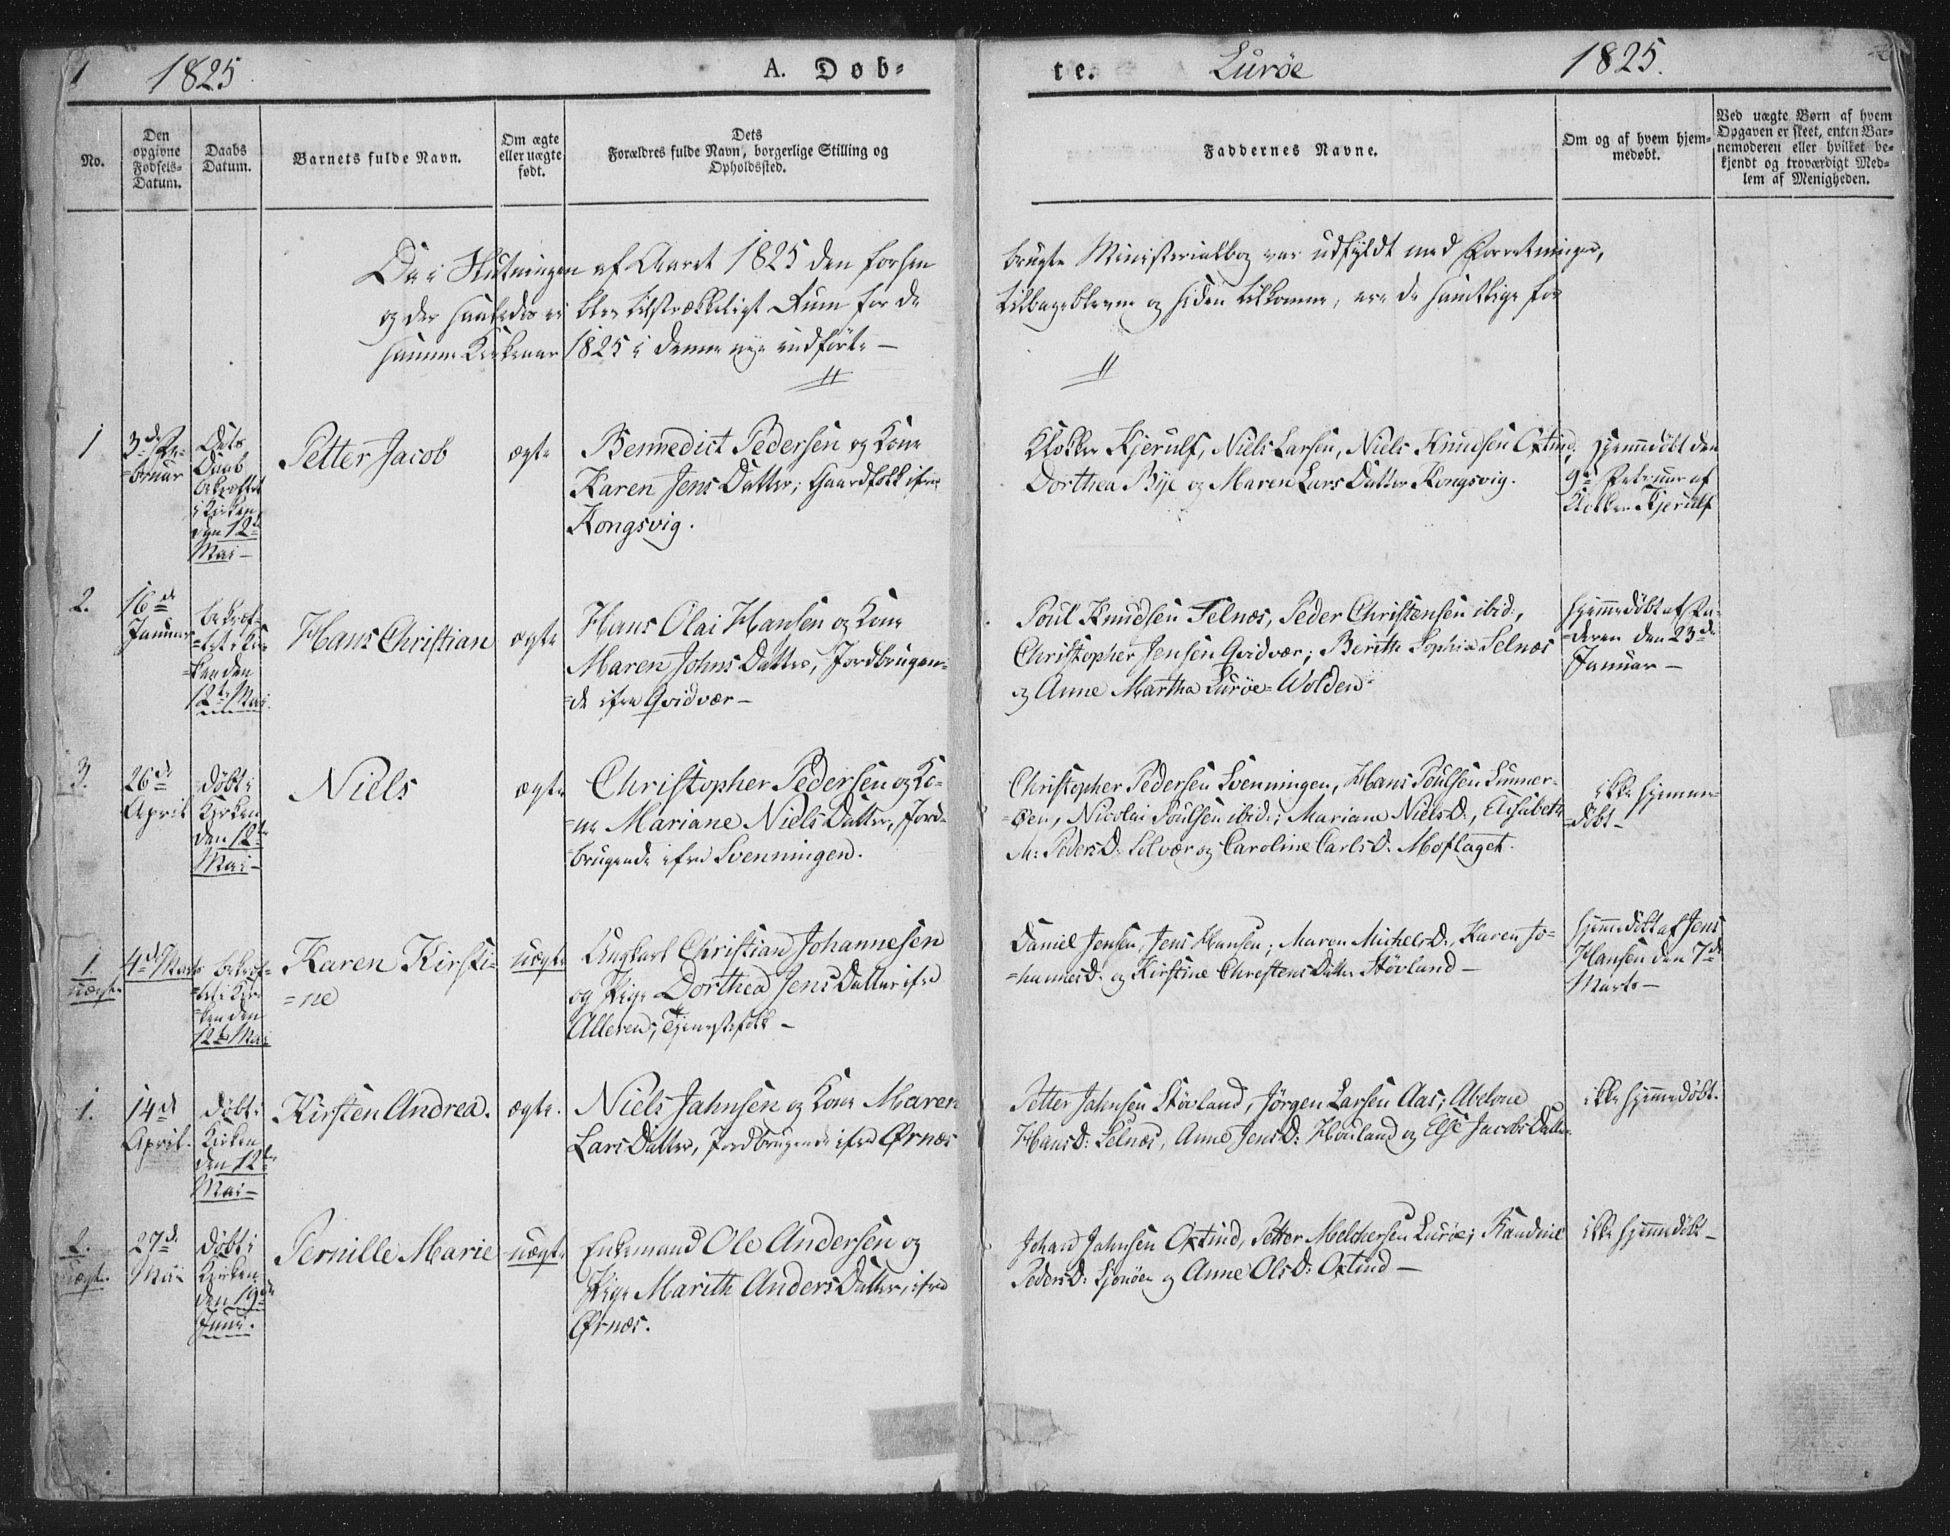 1
1825
A. Døb-
te.
Lurøe
1825.
No.
Den
opgivne
Fødsels-
Datum.
Daabs
Datum.
Barnets fulde Navn.
Om ægte
eller uægte
født.
Dets
Forældres fulde Navn, borgerlige Stilling og
Opholdssted.
Faddernes Navne.
Om og af hvem hjem-
medøbt.
Ved uægte Børn af hvem
Opgaven er skeet, enten Bar-
nemoderen eller hvilket be-
kjendt og troværdigt Med-
lem af Menigheden.
Da i Slutningen af Aaret 1825 den forhen
brugte Ministerialbog var udfyldt med Forretninger,
og der saaledes ei blev tilstrækkeligt Rum for de
tilbageblevne og siden tilkomne, ere de samtlige for
samme Kirkeaar 1825 i denne nye indførte —
1
3de Fe-
=bruar
Daab
bekræftet
i Kirken
den 12te
Mai —
Petter Jacob
ægte
Bennedict Pedersen og Kone
Karen Jens Datter; Gaardfolk ifra
Kongsvig.
Klokker Kjerulf, Niels Larsen, Niels Knudsen Oxtind,
Dorthea Bye og Maren Lars Datter Kongsvig.
hjemmedøbt den
9de Februar af
Klokker Kjerulf
2.
16de
Januar
bekræf-
=tet i Kir-
=ken den
12te Mai
Hans Christian
ægte
Hans Olai Hansen og Kone
Maren Johns Datter, Jordbrugen-
=de ifra Qvidvær —
Poul Knudsen Selnæs, Peder Christensen ibid:,
Christopher Jensen Qvidvær; Berithe Sophia Selnæs
og Anne Martha Lurøe=Wolden
hjemmedøbt af Fa-
=deren den 23de
Januar —
3.
26de
April
døbt i
Kirken
den 12te
Mai —
Niels
ægte
Christopher Pedersen og Ko-
ne Mariane Niels Datter, Jord-
brugende ifra Svenningen.
Christopher Pedersen Svenningen, Hans Poulsen
Nicolai Poulsen ibid:; Mariane NielsD., Elisabeth
M: PedersD. Selvær og Caroline CarlsD. Moflaget.
ikke hjemme-
=døbt —
1
uægte
4de Marts
bekræf-
=tet i Kir-
ken den
12te Mai
Karen Kirsti-
=ne
uægte
Ungkarl Christian Johannesen
og Pige Dorthea Jens Datter ifra
Alleren; Tjenestefolk —
Daniel Jensen, Jens Hansen; Maren MichelsD., Karen Jo-
=hannesD. og Kirstine Christens Datter Støvland —
hjemmedøbt af Jens
Hansen den 7de
Marts —
1.
14de
April.
døbt i
Kirken
den 12te
Mai —
Kirsten Andrea.
ægte.
Niels Jahnsen og Kone Maren
Lars Datter, Jordbrugende ifra Ørnæs
Petter Jahnsen Støvland, Jørgen Larsen Aas; Abelone
HansD: Selnæs, Anne JensD: Houland og Else Jacobs Datter
ikke hjemmedøbt.
2.
uægte.
27de
Mai
døbt i
Kirken
den 19de
Juni.
Pernille Marie
uægte
Enkemand Ole Andersen og
Pige Marith Anders Datter, ifra
Ørnæs.
Johan Jahnsen Oxtind, Petter Melchersen Lurøe;
PedersD: Sjonøen og Anne OlsD: Oxtind —
ikke hjemmedøbt —